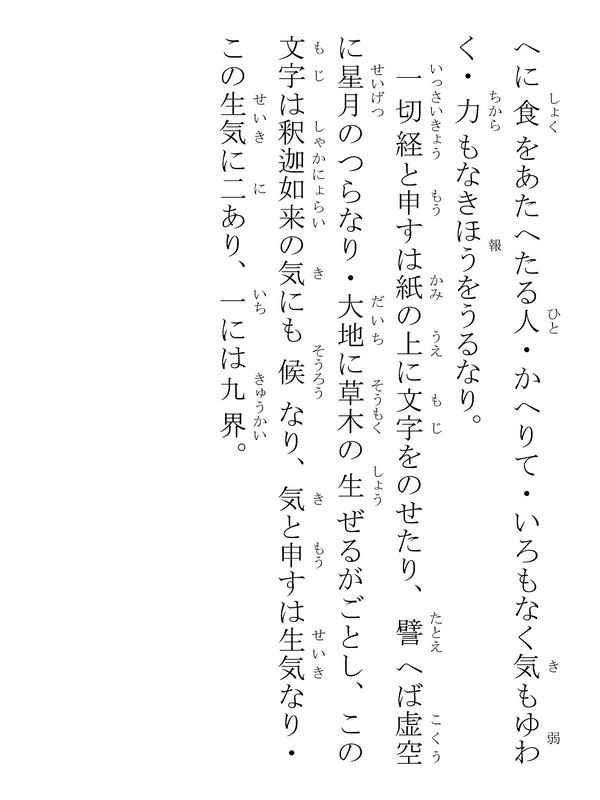 へに食をあたへたる人・かへりて・いろもなく気もゆわ
く・力もなきほうをうるなり。
一切経と申すは紙の上に文字をのせたり、譬へば虚空
に星月のつらなり・大地に草木の生ぜるがごとし、この
文字は釈迦如来の気にも候なり、気と申すは生気なり・
この生気に二あり、一には九界。